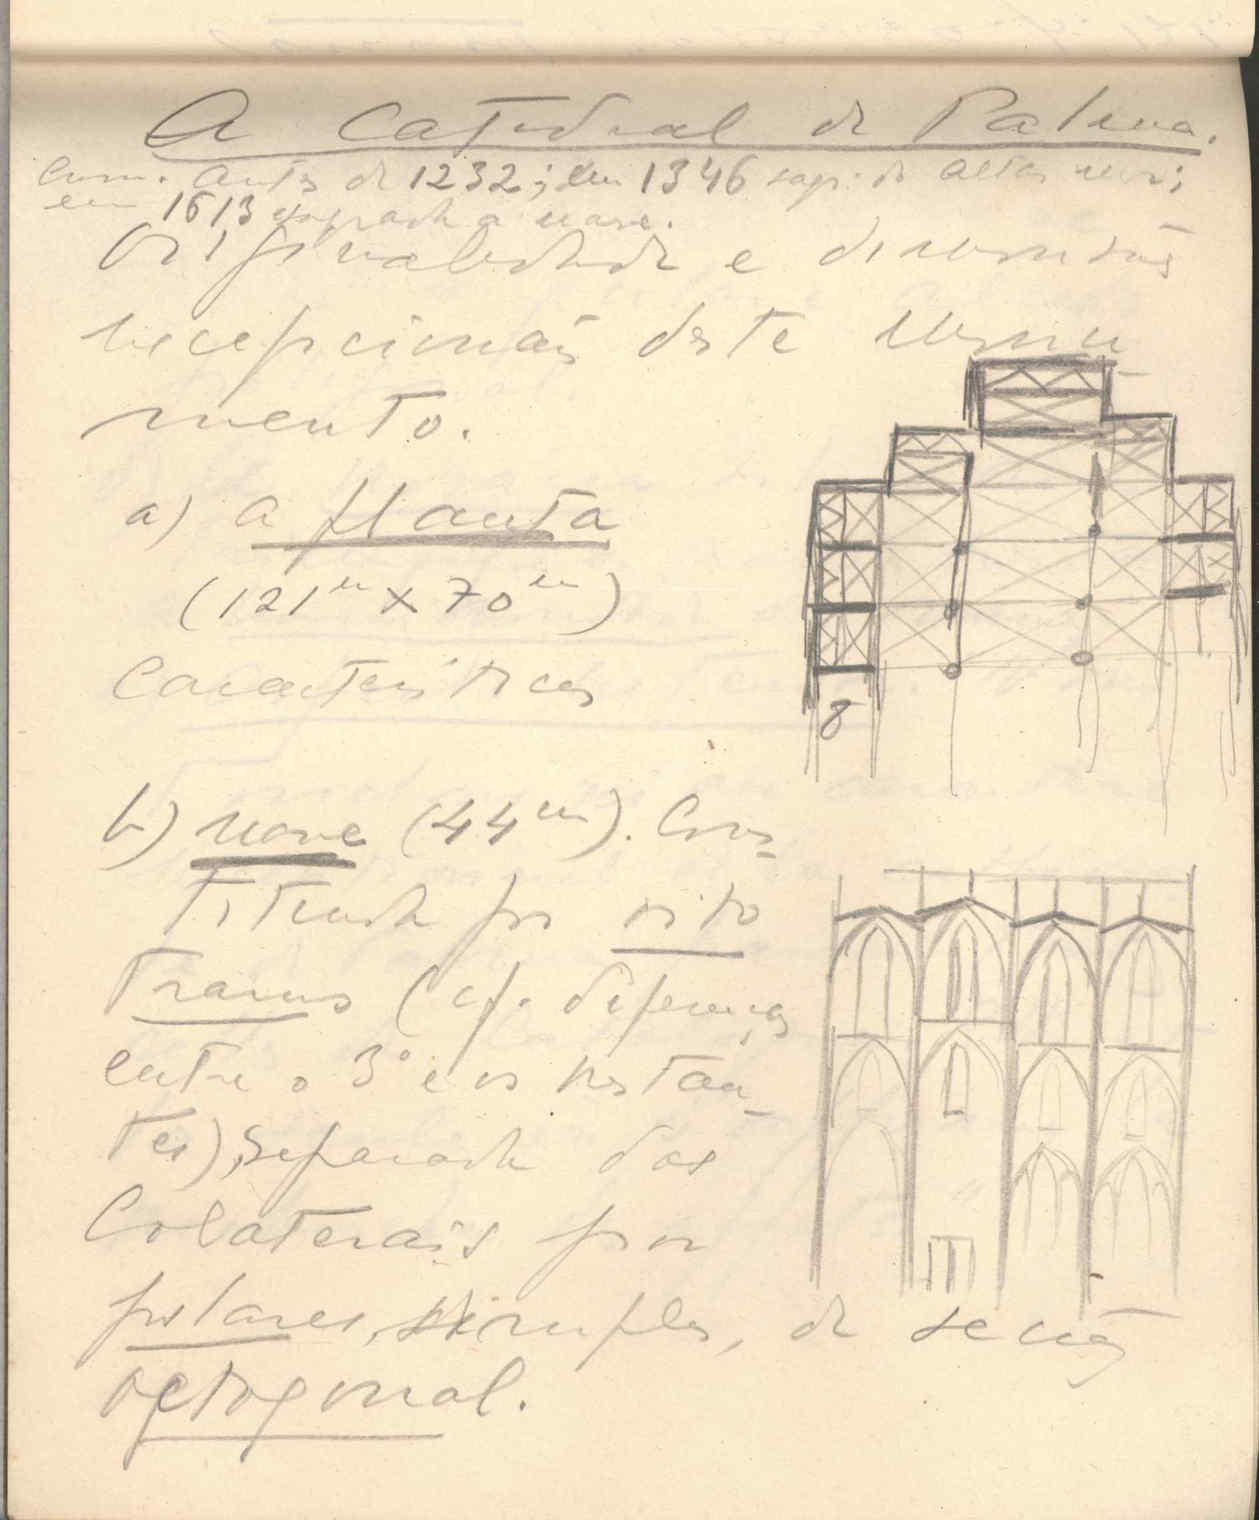 A Catedral de Palma.
Com. antes de 1232; em 1346 sagr. do altar mor;
em 1613 sagrada a nave.
Originalidade e dimensões
excepcionais deste monu-
mento.
a) a planta
(121m x 70m)
Características
8
b) nave (44m). Cons-
tituida por oito
tramos (cf. diferença
entre o 3º e os restan-
tes), separada das
Colaterais por
pilares, simples, de secção
octogonal.